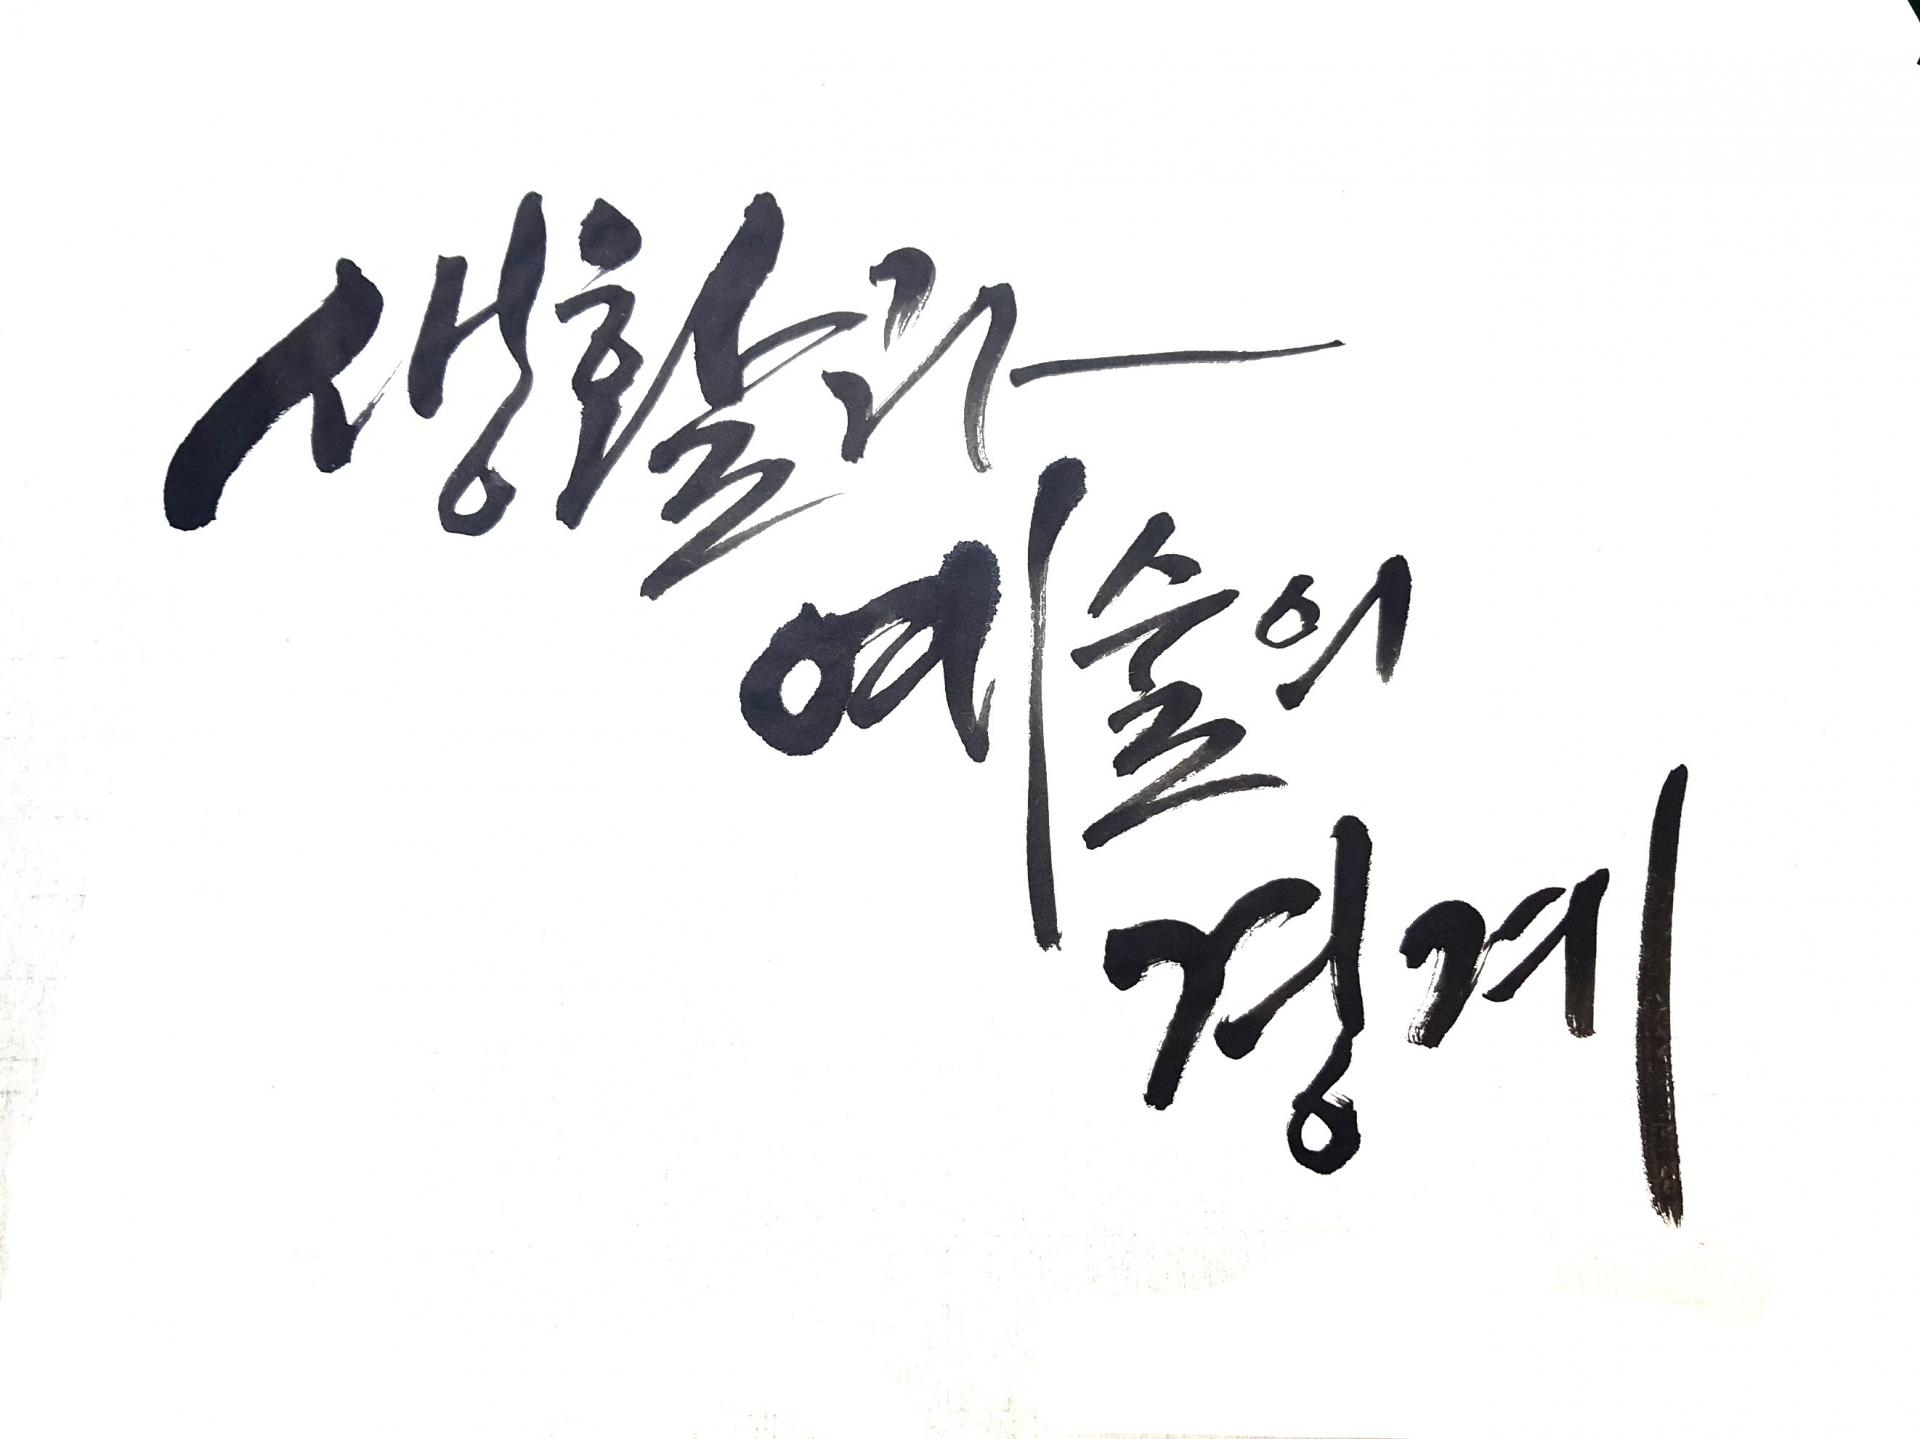 생활과
예술의
경계